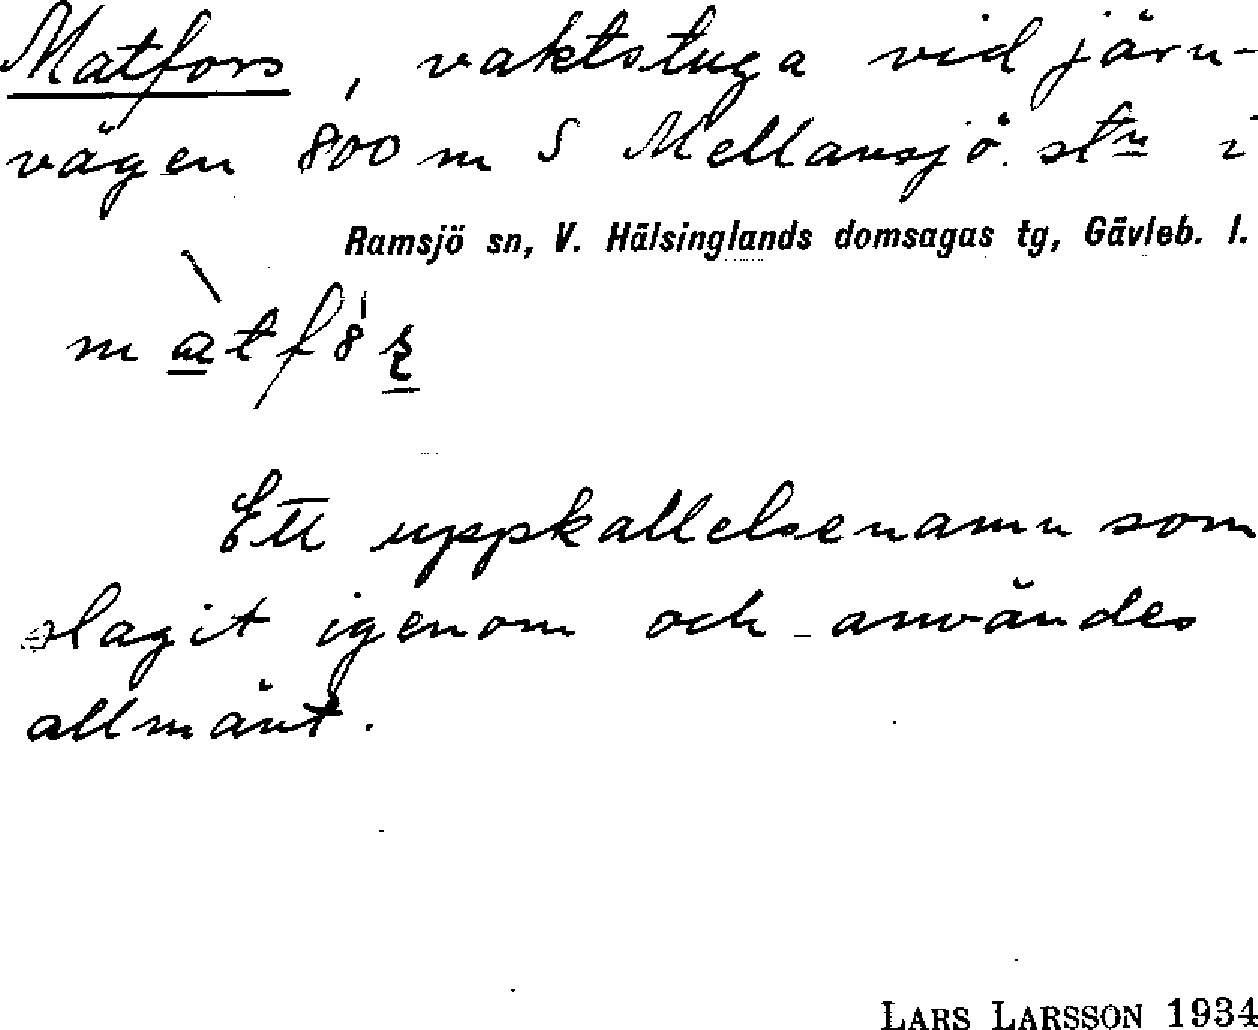 Matfors, vaktstuga vid järn-
vägen 800 m S Mellansjö stn i
Ramsjö sn, V. Hälsinglands domsagas tg, Gävleb. l.
Ett uppkallelsenamn som
slagit igenom och användes
allmänt.
LARS LARSSON 1934